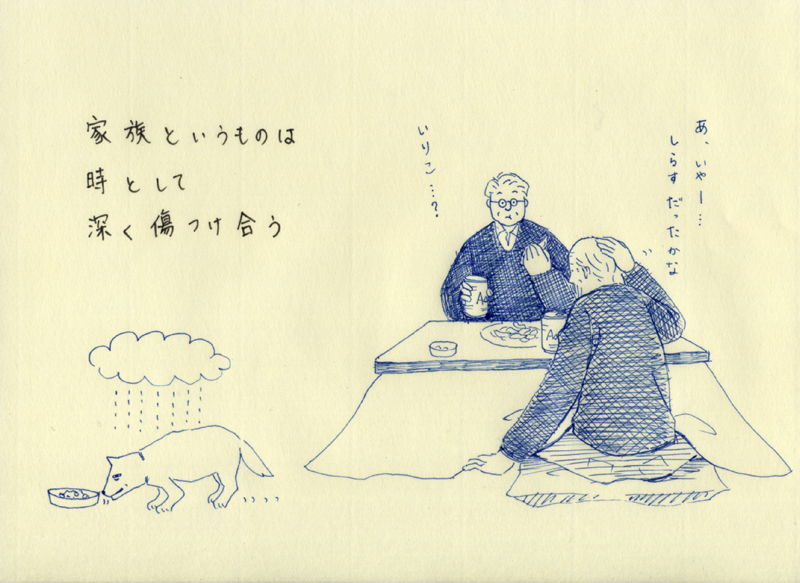 家族というものは
時として
深く傷つけ合う
いりこ…?
あ、いやー…
しらすだったかな